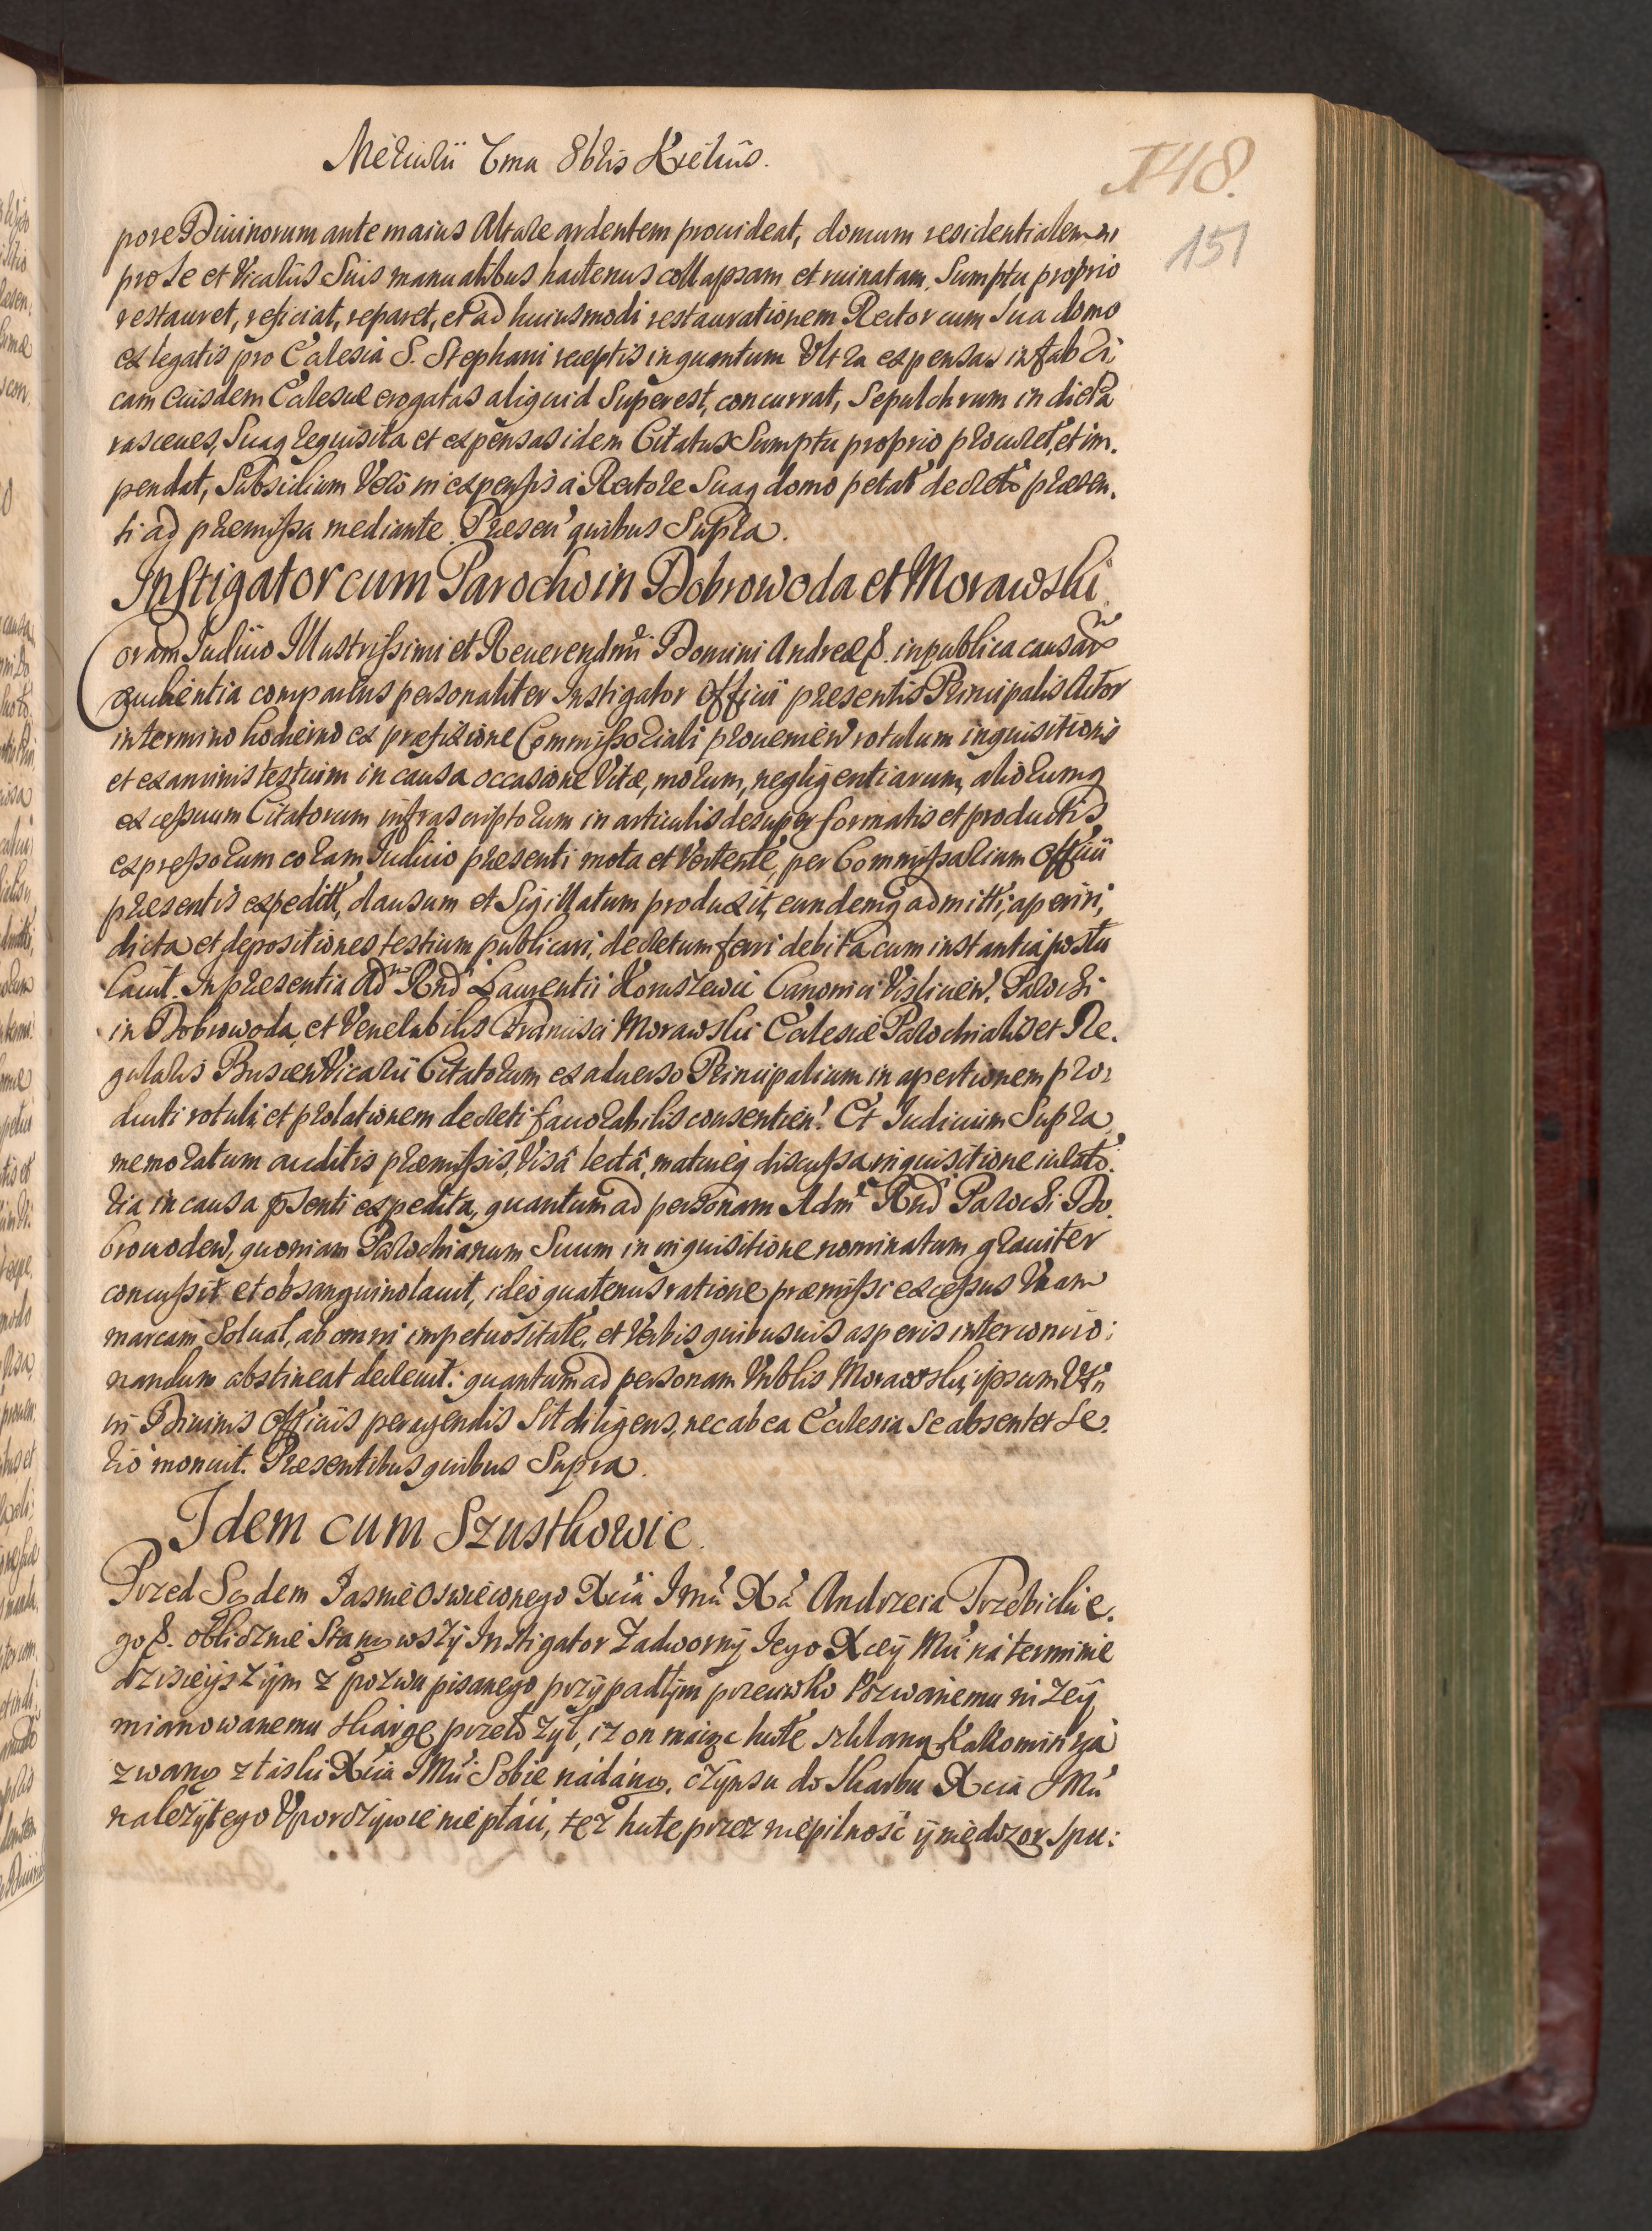 Mercurii 7ma 8bris Kielciis.
148.
151
pore Diuinorum ante maius Altare ardentem prouideat, domum residentialem
pro se et Vicariis Suis manualibus hactenus collapsam et ruinatam, Sumptu proprio
restauret, reficiat, reparet, et ad huiusmodi restaurationem Rector cum Sua domo
ex legatis pro Eclesia S. Stephani receptis inquantum Vltra expensas in fabri,
cam eiusdem Eclesiae erogatas aliquid Superest, concurrat, Sepulchrum in dicta
Suaq requisita et expensas idem Citatus Sumptu proprio procuret, et im.
pendat, Subsidium Vero in expensis a Rectore Suaq domo petat decreto praesen.
ti ad praemissa mediante. Praesen' quibus Supra.
Instigator cum Parocho in Dobrowoda et Morawski.
Coram Iudicio Illustrissimi et Reuerendmi Domini Andreae P. in publica causarum
audientia comparens personaliter Instigator Officii praesentis Principalis Actor
in termino hodierno ex praefixione Commissoriali prouenien' rotulum inquisitionis
et examinis testium in causa occasione Vitae, morum, negligentiarum, aliorumq
excessuum Citatorum infrascriptorum in articulis desuper formatis et productis
expressorum coram Iudicio praesenti mota et Vertente, per Commissarium Officii
praesentis expedit', clausum et Sigillatum produxit, eundemq admitti, aperiri,
dicta et depositiones testium publicari, decretum ferri debita cum instantia postu
lauit. In praesentia Ad Rnd Laurentii Canonici Vislicien', Parochi
in Dobrowoda, et Venerabilis Francisci Morawski Eclesiae Parochialis et Re.
gularis Buscen' Vicarii Citatorum ex aduerso Principalium in apertionem pro,
ducti rotuli et prolationem decreti fauorabilis consentien'. Et Iudicium Supra
memoratum auditis praemissis, Visâ lectâ, matureq discussa inquisitione iurato.
ria in causa psenti expedita, quantum ad personam Adm Rnd Parochi Do.
browoden', quoniam Parochianum Suum in inquisitione nominatum grauiter
concussit et obsanguinolauit, ideo quatenus ratione praemissi excessus Vnam
marcam Soluat, ab omni impetuositate, et Verbis quibusuis asperis inter concio:
nandum abstineat decreuit: quantum ad personam Vnblis Morawski, ipsum Vt
in Diuinis Officiis peragendis Sit diligens, nec ab ea Eclesia Se absentet Se.
rio monuit. Praesentibus quibus Supra.
Idem cum Szustkowic.
Przed Sądem Iasnie Oswieconego Xcia Imci Xa Andrzeia Trzebickie.
go P. obliczne Stanąwszy Instigator Zadworny Iego Xcey Mci ná terminie
dzisieyszym z pozwu pisanego przypadłym przeciwko Pozwanemu niżey
mianowanemu skargę przełożył, iz on maiąc hutę szklaną
zwaną z łaski Xcia IMci Sobie nádáną, czynszu do Skarbu Xcia IMci
należytego Vporczywie nie płáci, też hutę przez niepilność y niedozor spu: